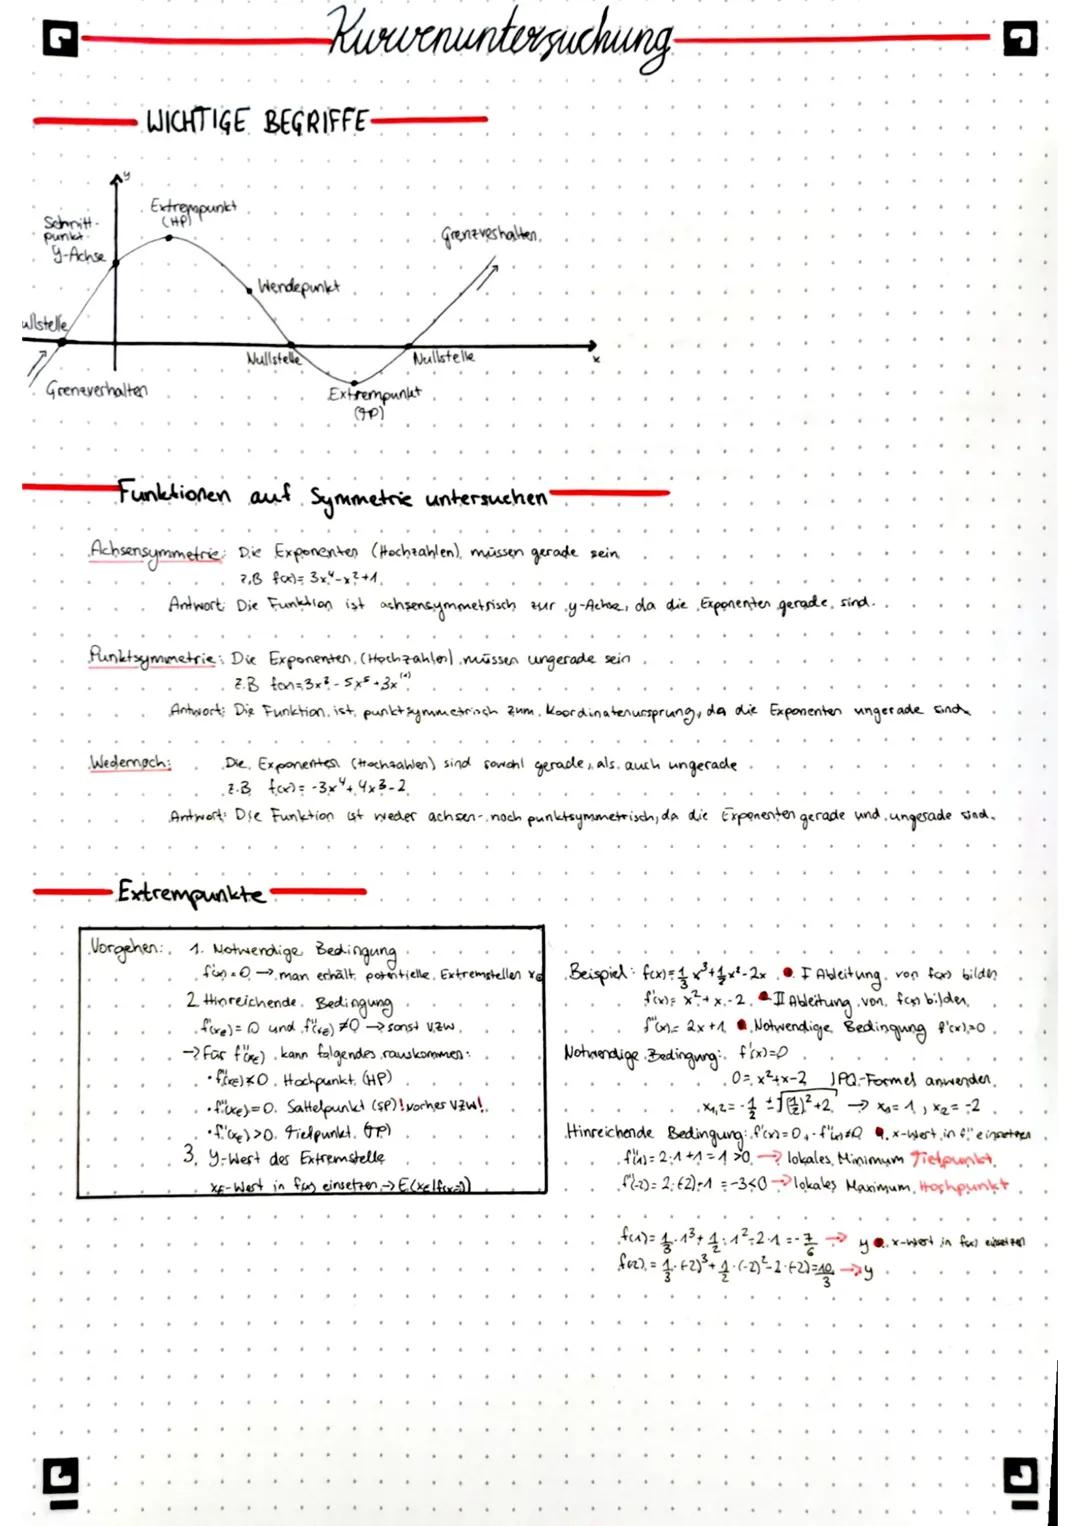 Kurvenuntersuchung
WICHTIGE BEGRIFFE
y
Extrempunkt
(HP)
Schnitt-
punkt
y-Achse
Grenzverhalten
Wendepunkt
ullstelle
Nullstelle
Nullstelle
x
Grenzverhalten
Extrempunkt
(TP)
Funktionen auf Symmetrie untersuchen
Achsensymmetrie: Die Exponenten (Hochzahlen) müssen gerade sein
z.B f(x)= 3x⁴-x²+1
Antwort: Die Funktion ist achsensymmetrisch zur y-Achse, da die Exponenten gerade sind.
Punktsymmetrie: Die Exponenten (Hochzahlen) müssen ungerade sein
z.B f(x)=3x³-5x⁵+3x⁽¹⁾
Antwort: Die Funktion ist punktsymmetrisch zum Koordinatenursprung, da die Exponenten ungerade sind
Wedernoch: Die Exponenten (Hochzahlen) sind sowohl gerade, als auch ungerade
z.B f(x)= -3x⁴+4x³-2
Antwort: Die Funktion ist weder achsen- noch punktsymmetrisch, da die Exponenten gerade und ungerade sind.
Extrempunkte
Vorgehen: 1. Notwendige Bedingung
f'(x)=0 → man erhält potentielle Extremstellen xₑ
2 Hinreichende Bedingung
f'(xₑ)=0 und f''(xₑ)≠0 → sonst VZW
→ Für f''(xₑ) kann folgendes rauskommen:
• f''(xₑ)<0 Hochpunkt (HP)
• f''(xₑ)=0. Sattelpunkt (SP)! vorher VZW!
• f''(xₑ)>0. Tiefpunkt. (TP)
3. Y-Wert des Extremstelle
xₑ-Wert in f(x) einsetzen → E(xₑ|f(xₑ))
Beispiel: f(x)=1/3 x³+1/2 x²-2x • I Ableitung von f(x) bilden
f'(x)= x²+x-2 • II Ableitung von f(x) bilden
f''(x)= 2x+1 • Notwendige Bedingung f'(x)=0
Notwendige Bedingung: f'(x)=0
0= x²+x-2 | PQ-Formel anwenden
x₁,₂= -1/2 ±√(1/2)²+2 → x₁=1, x₂=-2
Hinreichende Bedingung: f'(x)=0, f''(x)≠0 • x-Wert in f'' einsetzen
f''(1)= 2·1+1 = 1 >0 → lokales Minimum Tiefpunkt
f''(-2)= 2·(-2)+1 = -3<0 → lokales Maximum Hochpunkt
f(1)= 1/3·1³+1/2·1²-2·1 = -7/6 → y • x-Wert in f(x) einsetzen
f(-2)= 1/3·(-2)³+1/2·(-2)²-2·(-2)=10/3 → y